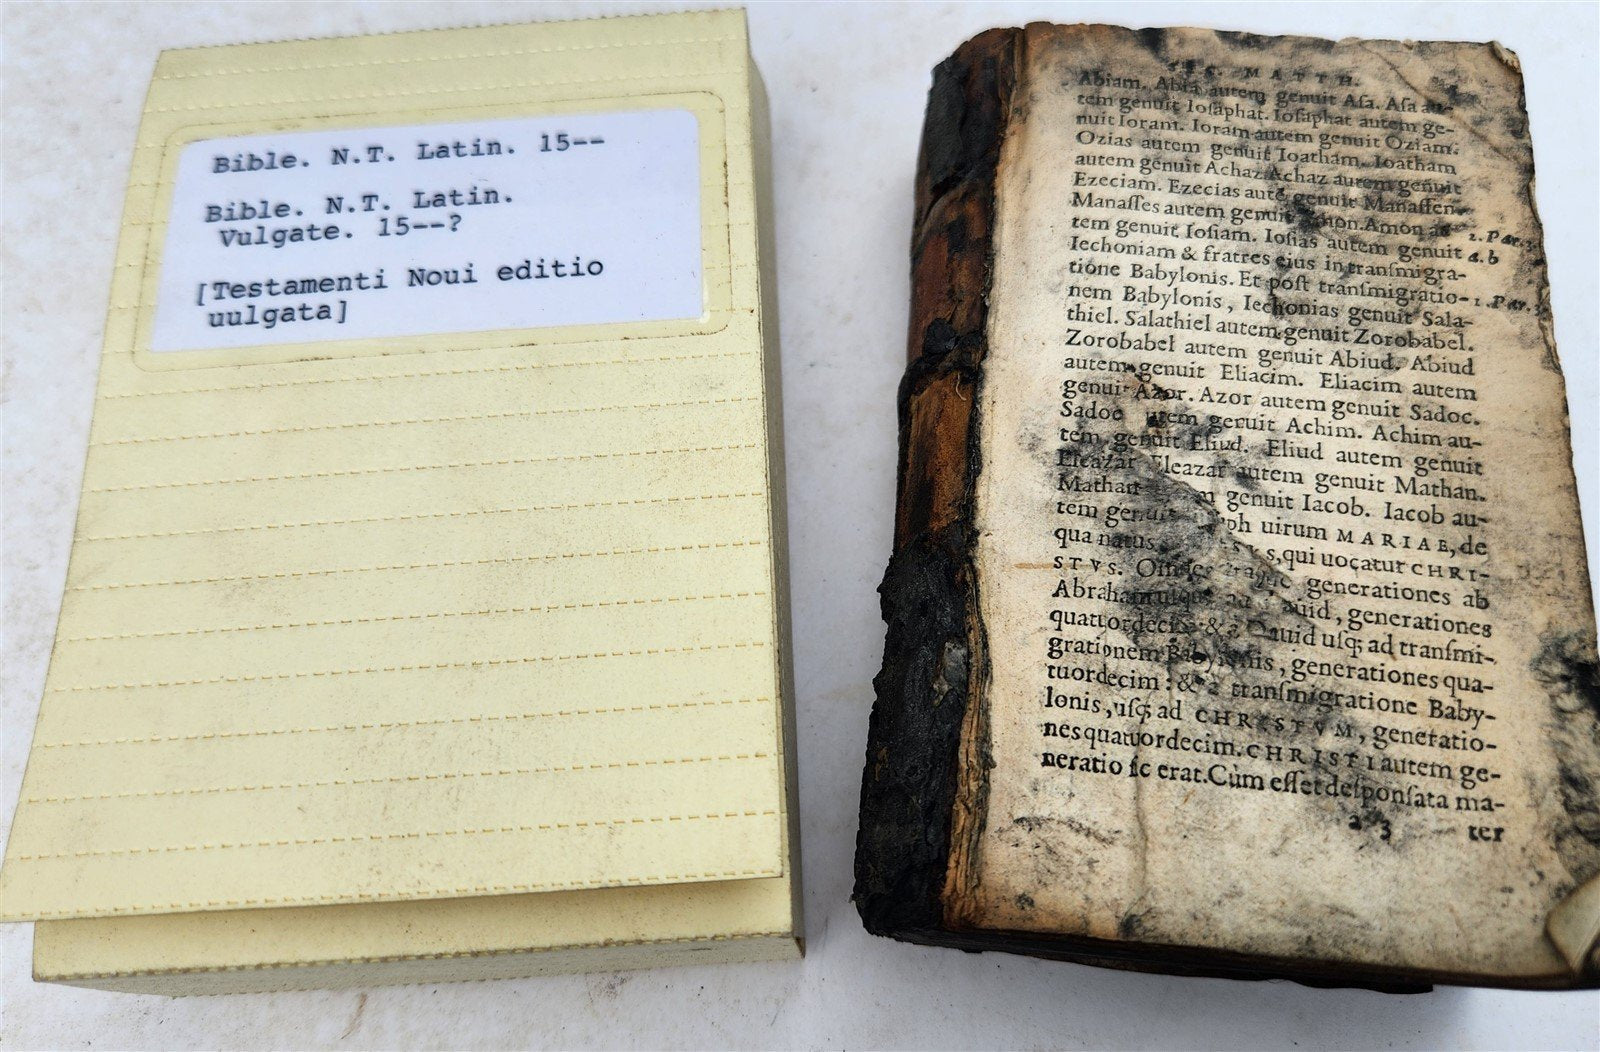 Bible. N.T. Latin. 15--
Bible. N.T. Latin.
Vulgate. 15--?
[Testamenti Noui editio
uulgata]
MATTH.
Abiam. Abia autem genuit Aſa. Aſa au-
tem genuit Ioſaphat. Ioſaphat autem ge-
nuit Ioram. Ioram autem genuit Oziam.
Ozias autem genuit Ioatham. Ioatham
autem genuit Achaz. Achaz autem genuit
Ezeciam. Ezecias autē genuit Manaſſen.
Manaſſes autem genuit Amon. Amon au-
tem genuit Ioſiam. Ioſias autem genuit
1. Par. 3.
a. b
Iechoniam & fratres eius in tranſmigra-
tione Babylonis. Et poſt tranſmigratio-
1. Par. 3.
nem Babylonis, Iechonias genuit Sala-
thiel. Salathiel autem genuit Zorobabel.
Zorobabel autem genuit Abiud. Abiud
autem genuit Eliacim. Eliacim autem
genuit Azor. Azor autem genuit Sadoc.
Sadoc utem genuit Achim. Achim au-
tem genuit Eliud. Eliud autem genuit
Eleazar Eleazar autem genuit Mathan.
Mathan genuit Iacob. Iacob au-
tem genuit ph uirum MARIAE, de
qua natus s, qui uocatur CHRI-
STVS. Omnes generationes ab
Abraham uſque ad Dauid, generationes
quattordecim & a Dauid uſq; ad tranſmi-
grationem Babylonis, generationes qua-
tuordecim: & à tranſmigratione Baby-
lonis, uſq; ad CHRISTVM, generatio-
nes quatuordecim. CHRISTI autem ge-
neratio ſic erat. Cùm eſſet deſponſata ma-
a 3 ter